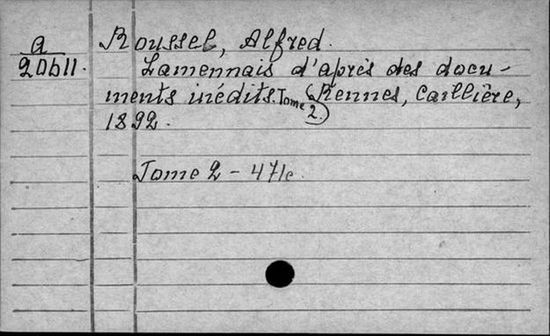 a
20611.
Roussel, Alfred.
Lamennais d'après des docu-
ments inédits. Tome 2. Rennes, Caillière,
1892.
Tome 2 - 471c.